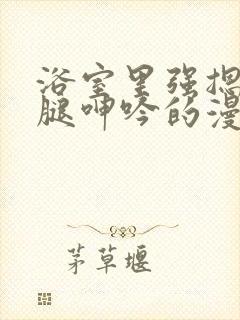 浴室里强揌
腿呻吟的漫
茅草堰